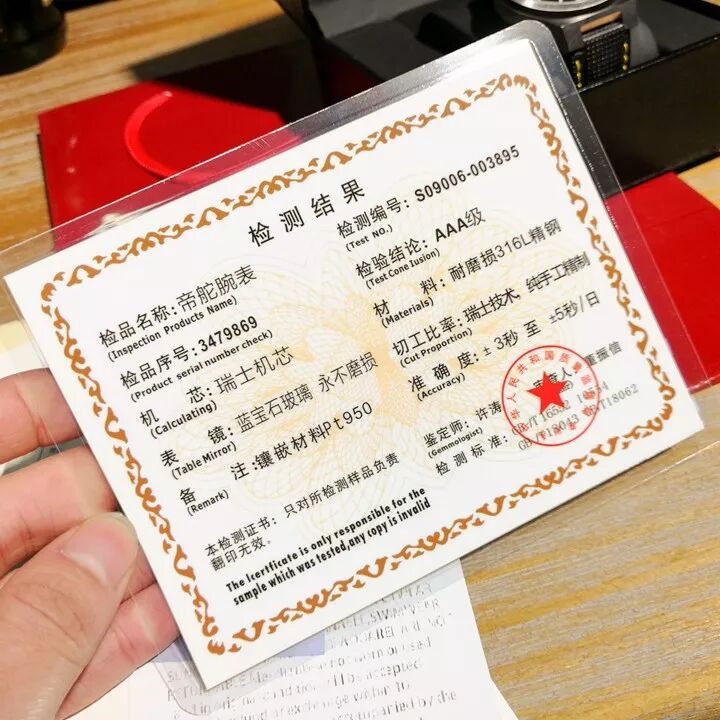 检测结果
检品名称:帝舵腕表
(Inspection Products Name)
检品序号:3479869
(Product serial number check)
机 芯:瑞士机芯
(Calculating)
表 镜:蓝宝石玻璃 永不磨损
(Table Mirror)
备 注:镶嵌材料Pt950
(Remark)
检测编号:S09006-003895
(Test NO.)
检验结论:AAA级
(Test Cone lusion)
材 料:耐磨损316L精钢
(Materials)
切工比率:瑞士技术,纯手工精制
(Cut Proportion)
准 确 度:±3秒 至 ±5秒/日
(Accuracy)
鉴定师:许涛
(Gemmologist)
检 测 标 准:GB/T16552
GB/T18043 GB/T18062
本检测证书:只对所检测样品负责
翻印无效。
The lcertficate is only responsible for the
sample which was tested,any copy is invalid